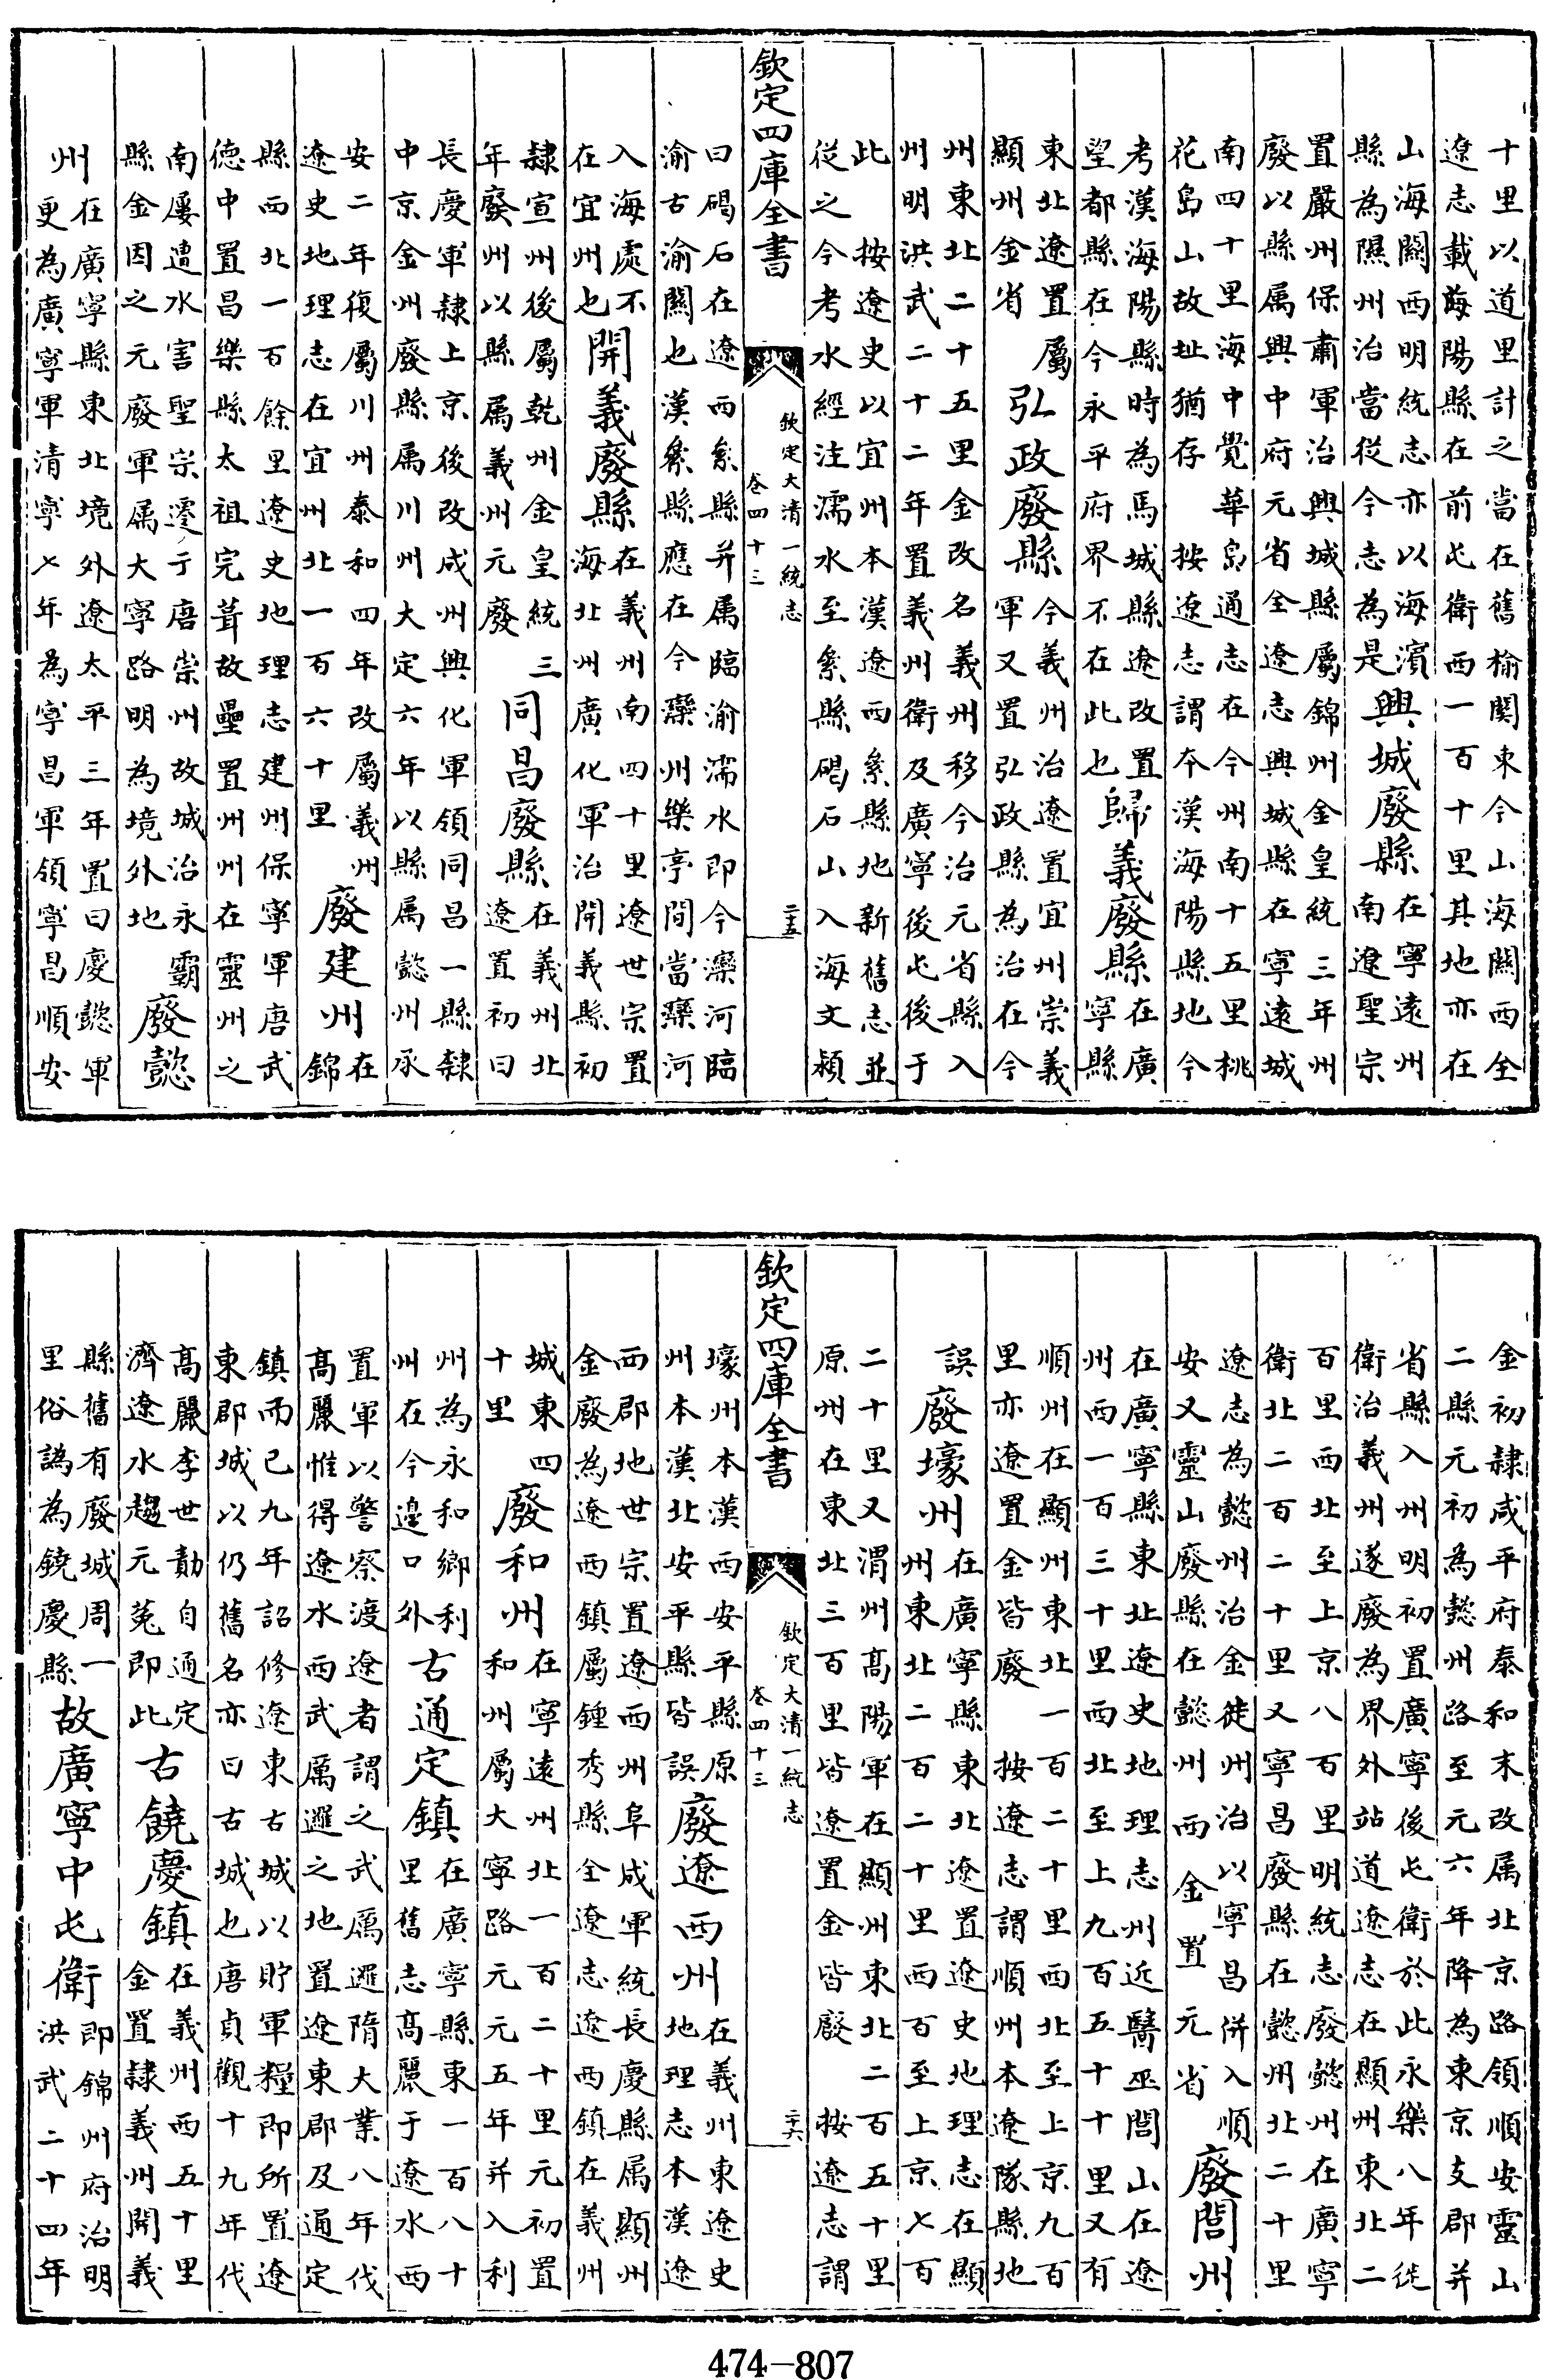 十里以道里計之當在舊榆関東今山海關西全
遼志載海陽縣在前屯衛西一百十里其地亦在
山海關西明統志亦以海濱
縣為隰州治當從今志為是
興城廢縣
在寧遠州
南遼聖宗
置嚴州保肅軍治興城縣屬錦州金皇統三年州
廢以縣属興中府元省全遼志興城縣在寧遠城
南四十里海中覺華島通志在今州南十五里桃
花島山故址猶存 按遼志謂本漢海陽縣地今
考漢海陽縣時為馬城縣遼改置
望都縣在今永平府界不在此也
歸義廢縣
在廣
寧縣
東北遼置屬
顯州金省
弘政廢縣
今義州治遼置宜州崇義
軍又置弘政縣為治在今
州東北二十五里金改名義州移今治元省縣入
州明洪武二十二年置義州衛及廣寧後屯後于
此 按遼史以宜州本漢遼西絫縣地新舊志並
從之今考水經注濡水至絫縣碣石山入海文穎
欽定四庫全書
欽定大清一統志
卷四十三
二十五
曰碣石在遼西絫縣并属臨渝濡水即今灤河臨
渝古渝關也漢絫縣應在今灤州樂亭間當灤河
入海處不
在宜州也
開義廢縣
在義州南四十里遼世宗置
海北州廣化軍治開義縣初
隸宣州後屬乾州金皇統三
年廢州以縣属義州元廢
同昌廢縣
在義州北
遼置初曰
長慶軍隸上京後改成州興化軍領同昌一縣隸
中京金州廢縣属川州大定六年以縣属懿州承
安二年復屬川州泰和四年改屬義州
遼史地理志在宜州北一百六十里
廢建州
在
錦
縣西北一百餘里遼史地理志建州保寧軍唐武
德中置昌樂縣太祖完葺故壘置州州在靈州之
南屢遭水害聖宗遷于唐崇州故城治永霸
縣金因之元廢軍属大寧路明為境外地
廢懿
州
在廣寧縣東北境外遼太平三年置曰慶懿軍
更為廣寧軍清寧七年為寧昌軍領寧昌順安
金初隸咸平府泰和末改属北京路領順安靈山
二縣元初為懿州路至元六年降為東京支郡并
省縣入州明初置廣寧後屯衛於此永樂八年徙
衛治義州遂廢為界外站道遼志在顯州東北二
百里西北至上京八百里明統志廢懿州在廣寧
衛北二百二十里又寧昌廢縣在懿州北二十里
遼志為懿州治金徙州治以寧昌併入順
安又靈山廢縣在懿州西金置元省
廢閭州
在廣寧縣東北遼史地理志州近醫巫閭山在遼
州西一百三十里西北至上九百五十十里又有
順州在顯州東北一百二十里西北至上京九百
里亦遼置金皆廢 按遼志謂順州本遼隊縣地
誤
廢壕州
在廣寧縣東北遼置遼史地理志在顯
州東北二百二十里西百至上京七百
二十里又渭州髙陽軍在顯州東北二百五十里
原州在東北三百里皆遼置金皆廢 按遼志謂
欽定四庫全書
欽定大清一統志
卷四十三
二十六
壕州本漢西安平縣原
州本漢北安平縣皆誤
廢遼西州
在義州東遼史
地理志本漢遼
西郡地世宗置遼西州阜成軍統長慶縣属顯州
金廢為遼西鎮屬鍾秀縣全遼志遼西鎮在義州
城東四
十里
廢和州
在寧遠州北一百二十里元初置
和州屬大寧路元元五年并入利
州為永和鄉利
州在今邊口外
古通定鎮
在廣寧縣東一百八十
里舊志髙麗于遼水西
置軍以警察渡遼者謂之武厲邏隋大業八年伐
髙麗惟得遼水西武厲邏之地置遼東郡及通定
鎮而已九年詔修遼東古城以貯軍糧即所置遼
東郡城以仍舊名亦曰古城也唐貞觀十九年代
髙麗李世勣自通定
濟遼水趨元菟即此
古饒慶鎮
在義州西五十里
金置隸義州開義
縣舊有廢城周一
里俗譌為鐃慶縣
故廣寧中屯衛
即錦州府治明
洪武二十四年
474-807